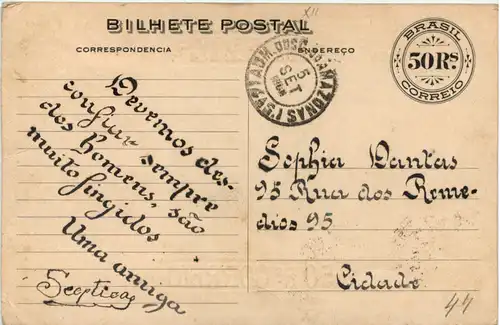 BILHETE POSTAL
CORRESPONDENCIA
ENDEREÇO
BRASIL
50 RS
CORREIO
XII
5
SET
AMAZONAS
Devemos des-
confiar sempre
dos homens, são
muito fingidos
Uma amiga
Sceptica
Sophia Dantas
95 Rua dos Reme-
dios 95
Cidade
44